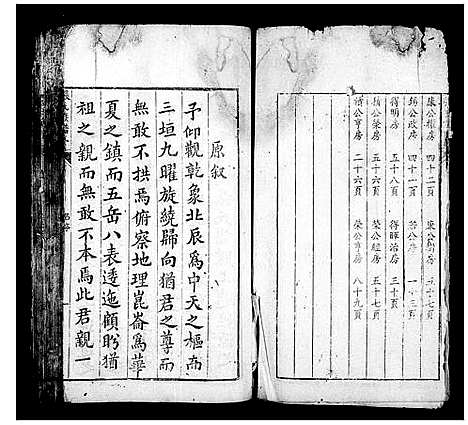 康公權房 四十二頁
公政房 四十一頁
得明房 五十八頁
公榮房 五十六頁
公亨房 二十六頁
公房 三十七頁
公房 一十三頁
得治房 三十頁
榮公經房 五十七頁
榮公寅房 八十九頁
原叙
予仰觀乾象北辰爲中天之樞而
三垣九曜旋繞歸向猶君之尊而
無敢不拱焉俯察地理崑崙爲華
夏之鎮而五岳八表逶迤顧盻猶
祖之親而無敢不本焉此君親一